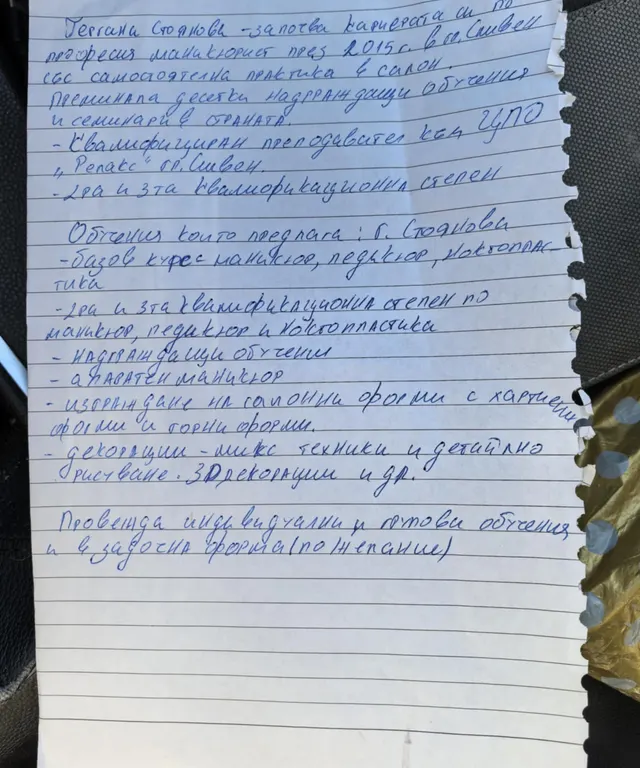 Гергана Стоянова - започва кариерата си по
професия маникюрист през 2015г. в гр. Сливен
със самостоятелна практика в салон.
Преминала десетки надграждащи обучения
и семинари в страната.
- Квалифициран преподавател към ЦПО
„Релакс“ гр. Сливен.
- 2ра и 3та квалификационна степен
Обучения които предлага: Г. Стоянова
- базов курс маникюр, педикюр, ноктоплас-
тика
- 2ра и 3та квалификационна степен по
маникюр, педикюр и ноктопластика
- надграждащи обучения
- апаратен маникюр
- изграждане на салонни форми с хартиени
форми и горни форми.
- декорации - микс техники и детайлно
рисуване. 3D декорации и др.
Провежда индивидуални и групови обучения
и в задочна форма (по желание)